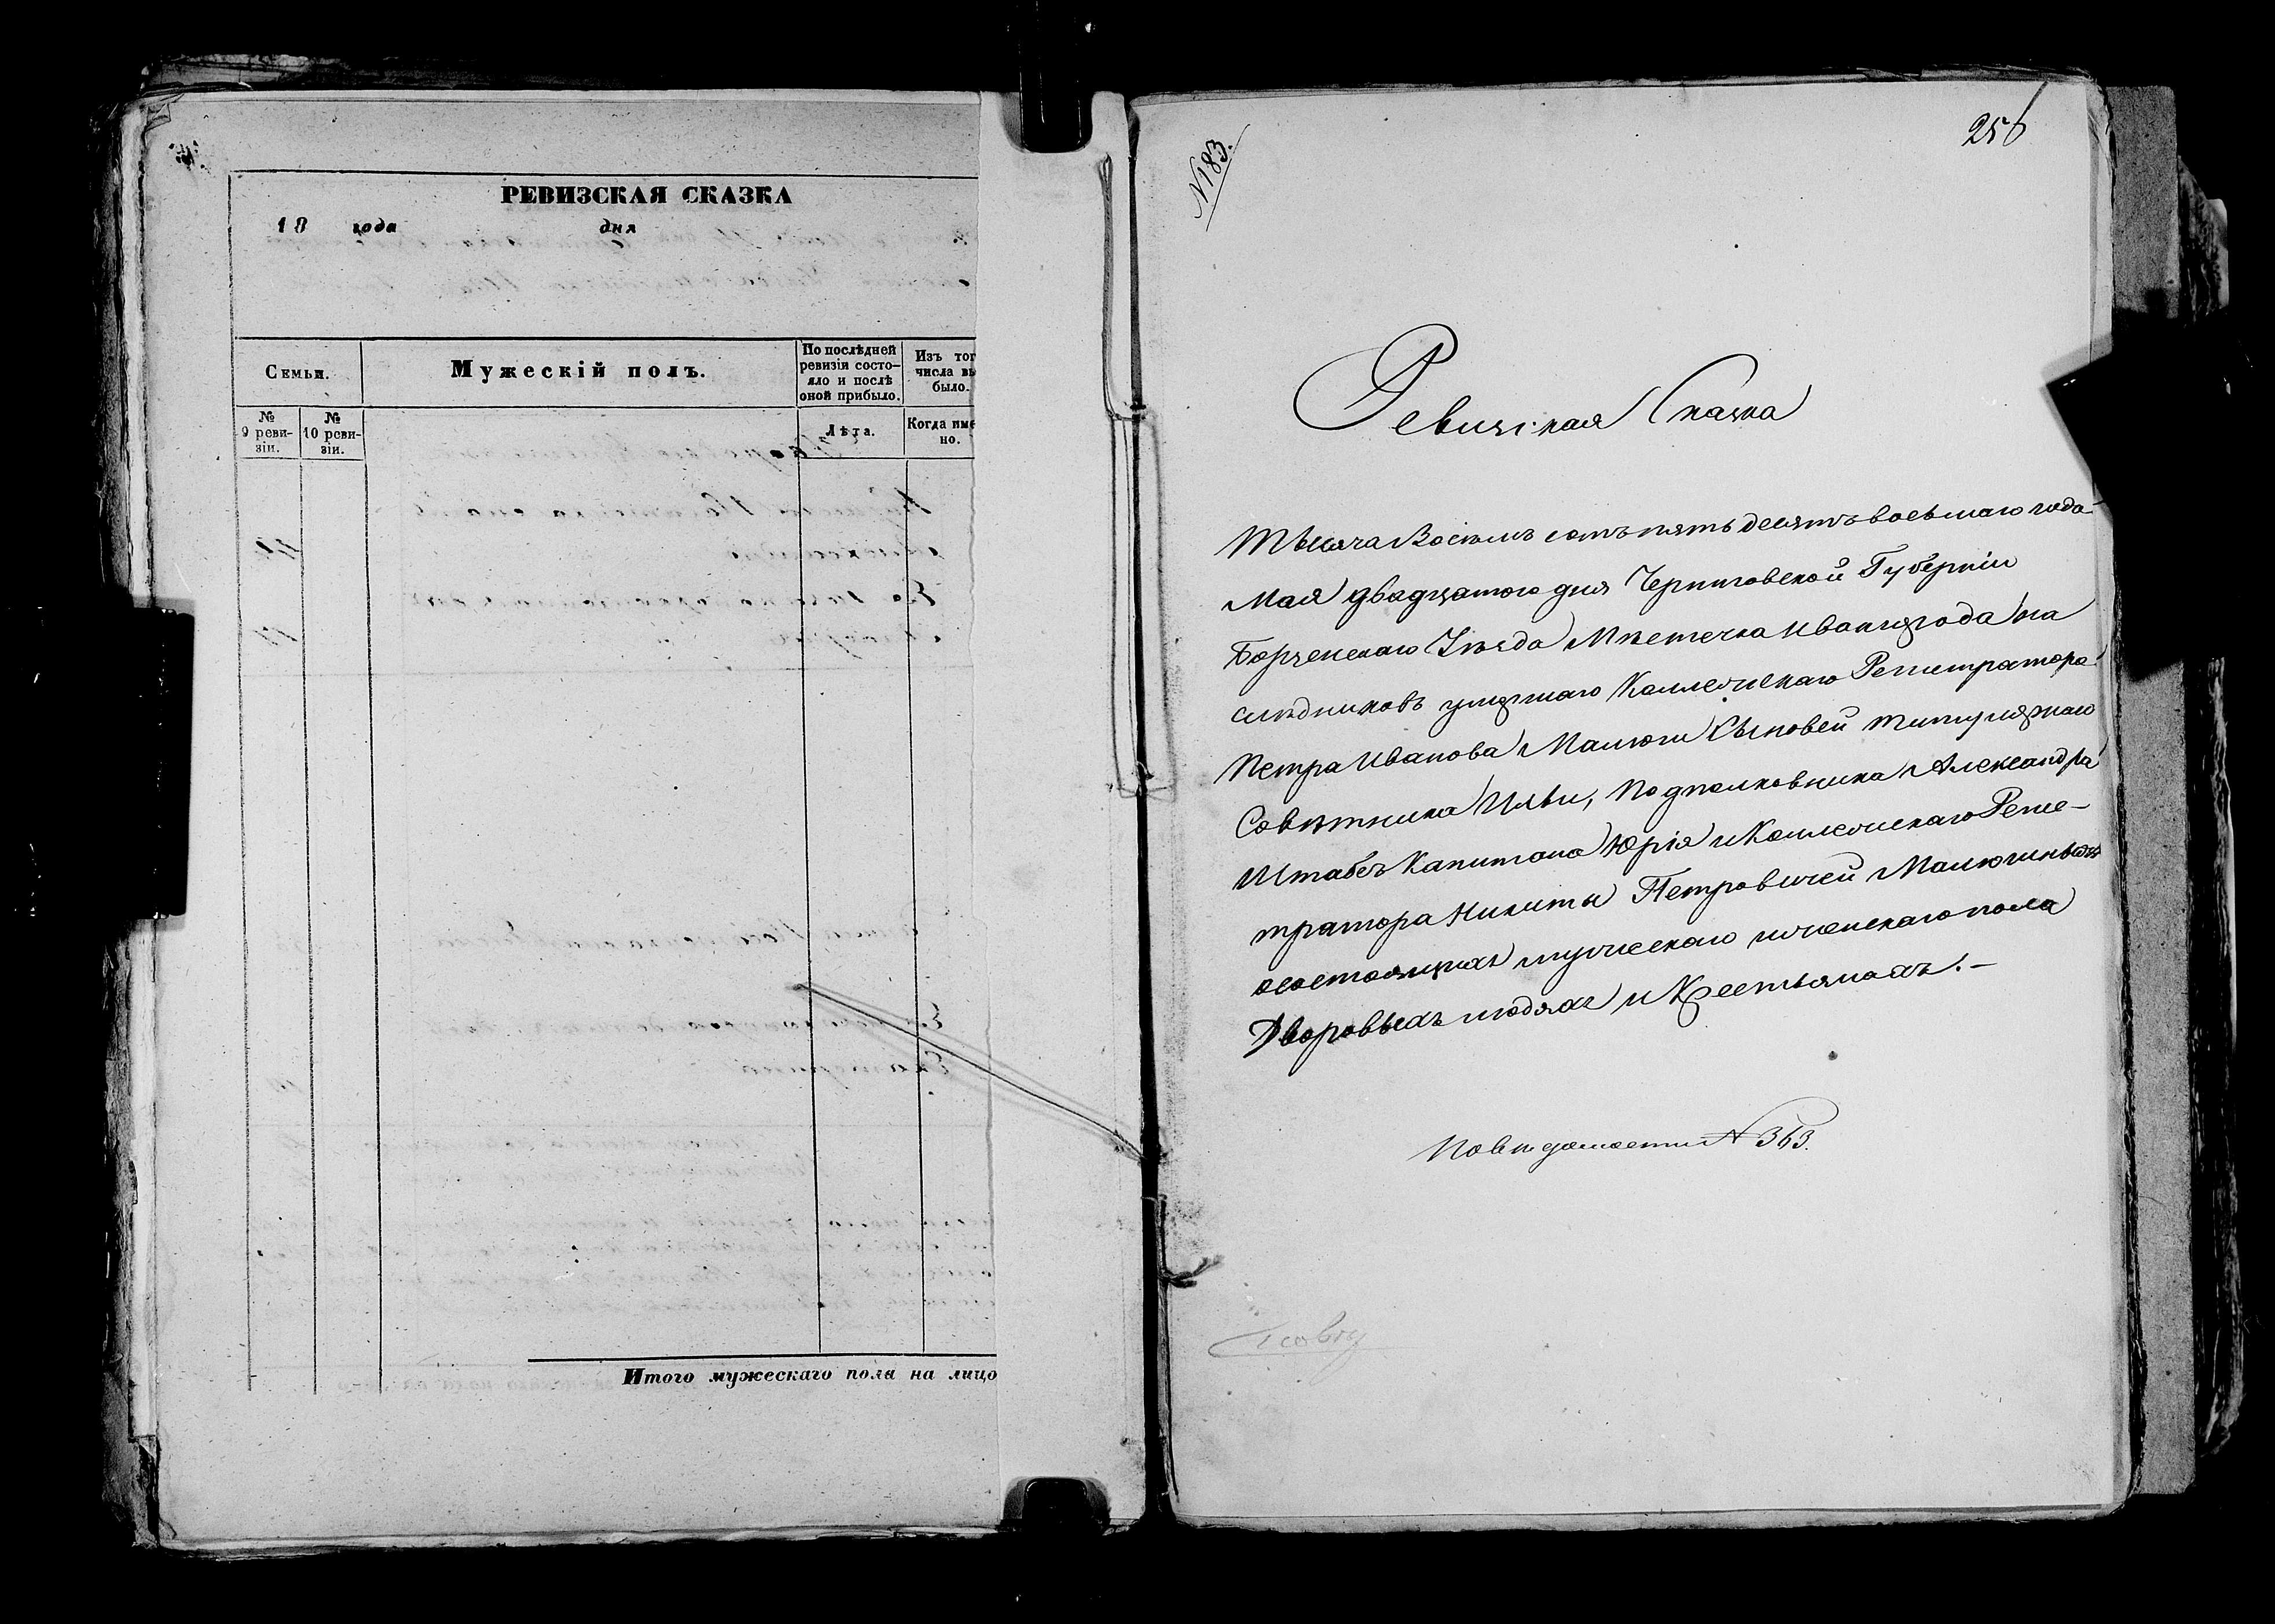 РЕВИЗСКАЯ СКАЗКА
18 года дня
Семьи.
Мужескій полъ.
По послѣдней
ревизіи состо-
яло и послѣ
оной прибыло.
Изъ тог
числа вы
было.
№
9 реви-
зіи.
№
10 реви-
зіи.
Лѣта.
Когда име
но.
Итого мужескаго пола на лицо
№183.
256
Ревизская Сказка
Тысяча Восемъ сотъ пятьдесятъ восьмаго года
Мая двадцатого дня Черниговской Губерніи
Борзенскаго Уѣзда Мѣстечка Иваньгорода на
слѣдниковъ умершаго Коллежскаго Регистратора
Петра Иванова Малюги Сыновей титулярнаго
Совѣтника Ильи, Подполковника Александра
Штабсъ Капитана Юрія и Коллежскаго Реги-
тратора Никиты Петровичей Малюгиныхъ
осостоящихъ мужескаго и женскаго пола
Дворовыхъ людяхъ и Крестьянахъ.-
По вѣдомости № 363.